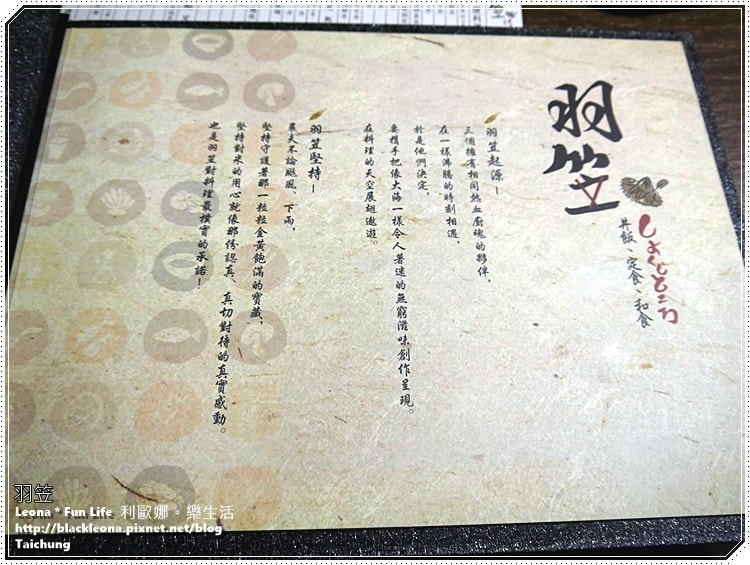 羽笠
しょくじところ
丼飯、定食、和食
羽笠起源－
三個擁有相同熱血廚魂的夥伴，
在一樣沸騰的時刻相遇，
於是他們決定，
要攜手把像大海一樣令人著迷的無窮滋味創作呈現。
在料理的天空展翅遨遊。
羽笠堅持－
農夫不論颱風、下雨，
堅持守護著那一粒粒金黃飽滿的寶藏，
堅持對米的用心就像那份認真、真切對待的真實感動。
也是羽笠對料理最樸實的承諾！
羽笠
Leona * Fun Life 利歐娜。樂生活
http://blackleona.pixnet.net/blog
Taichung